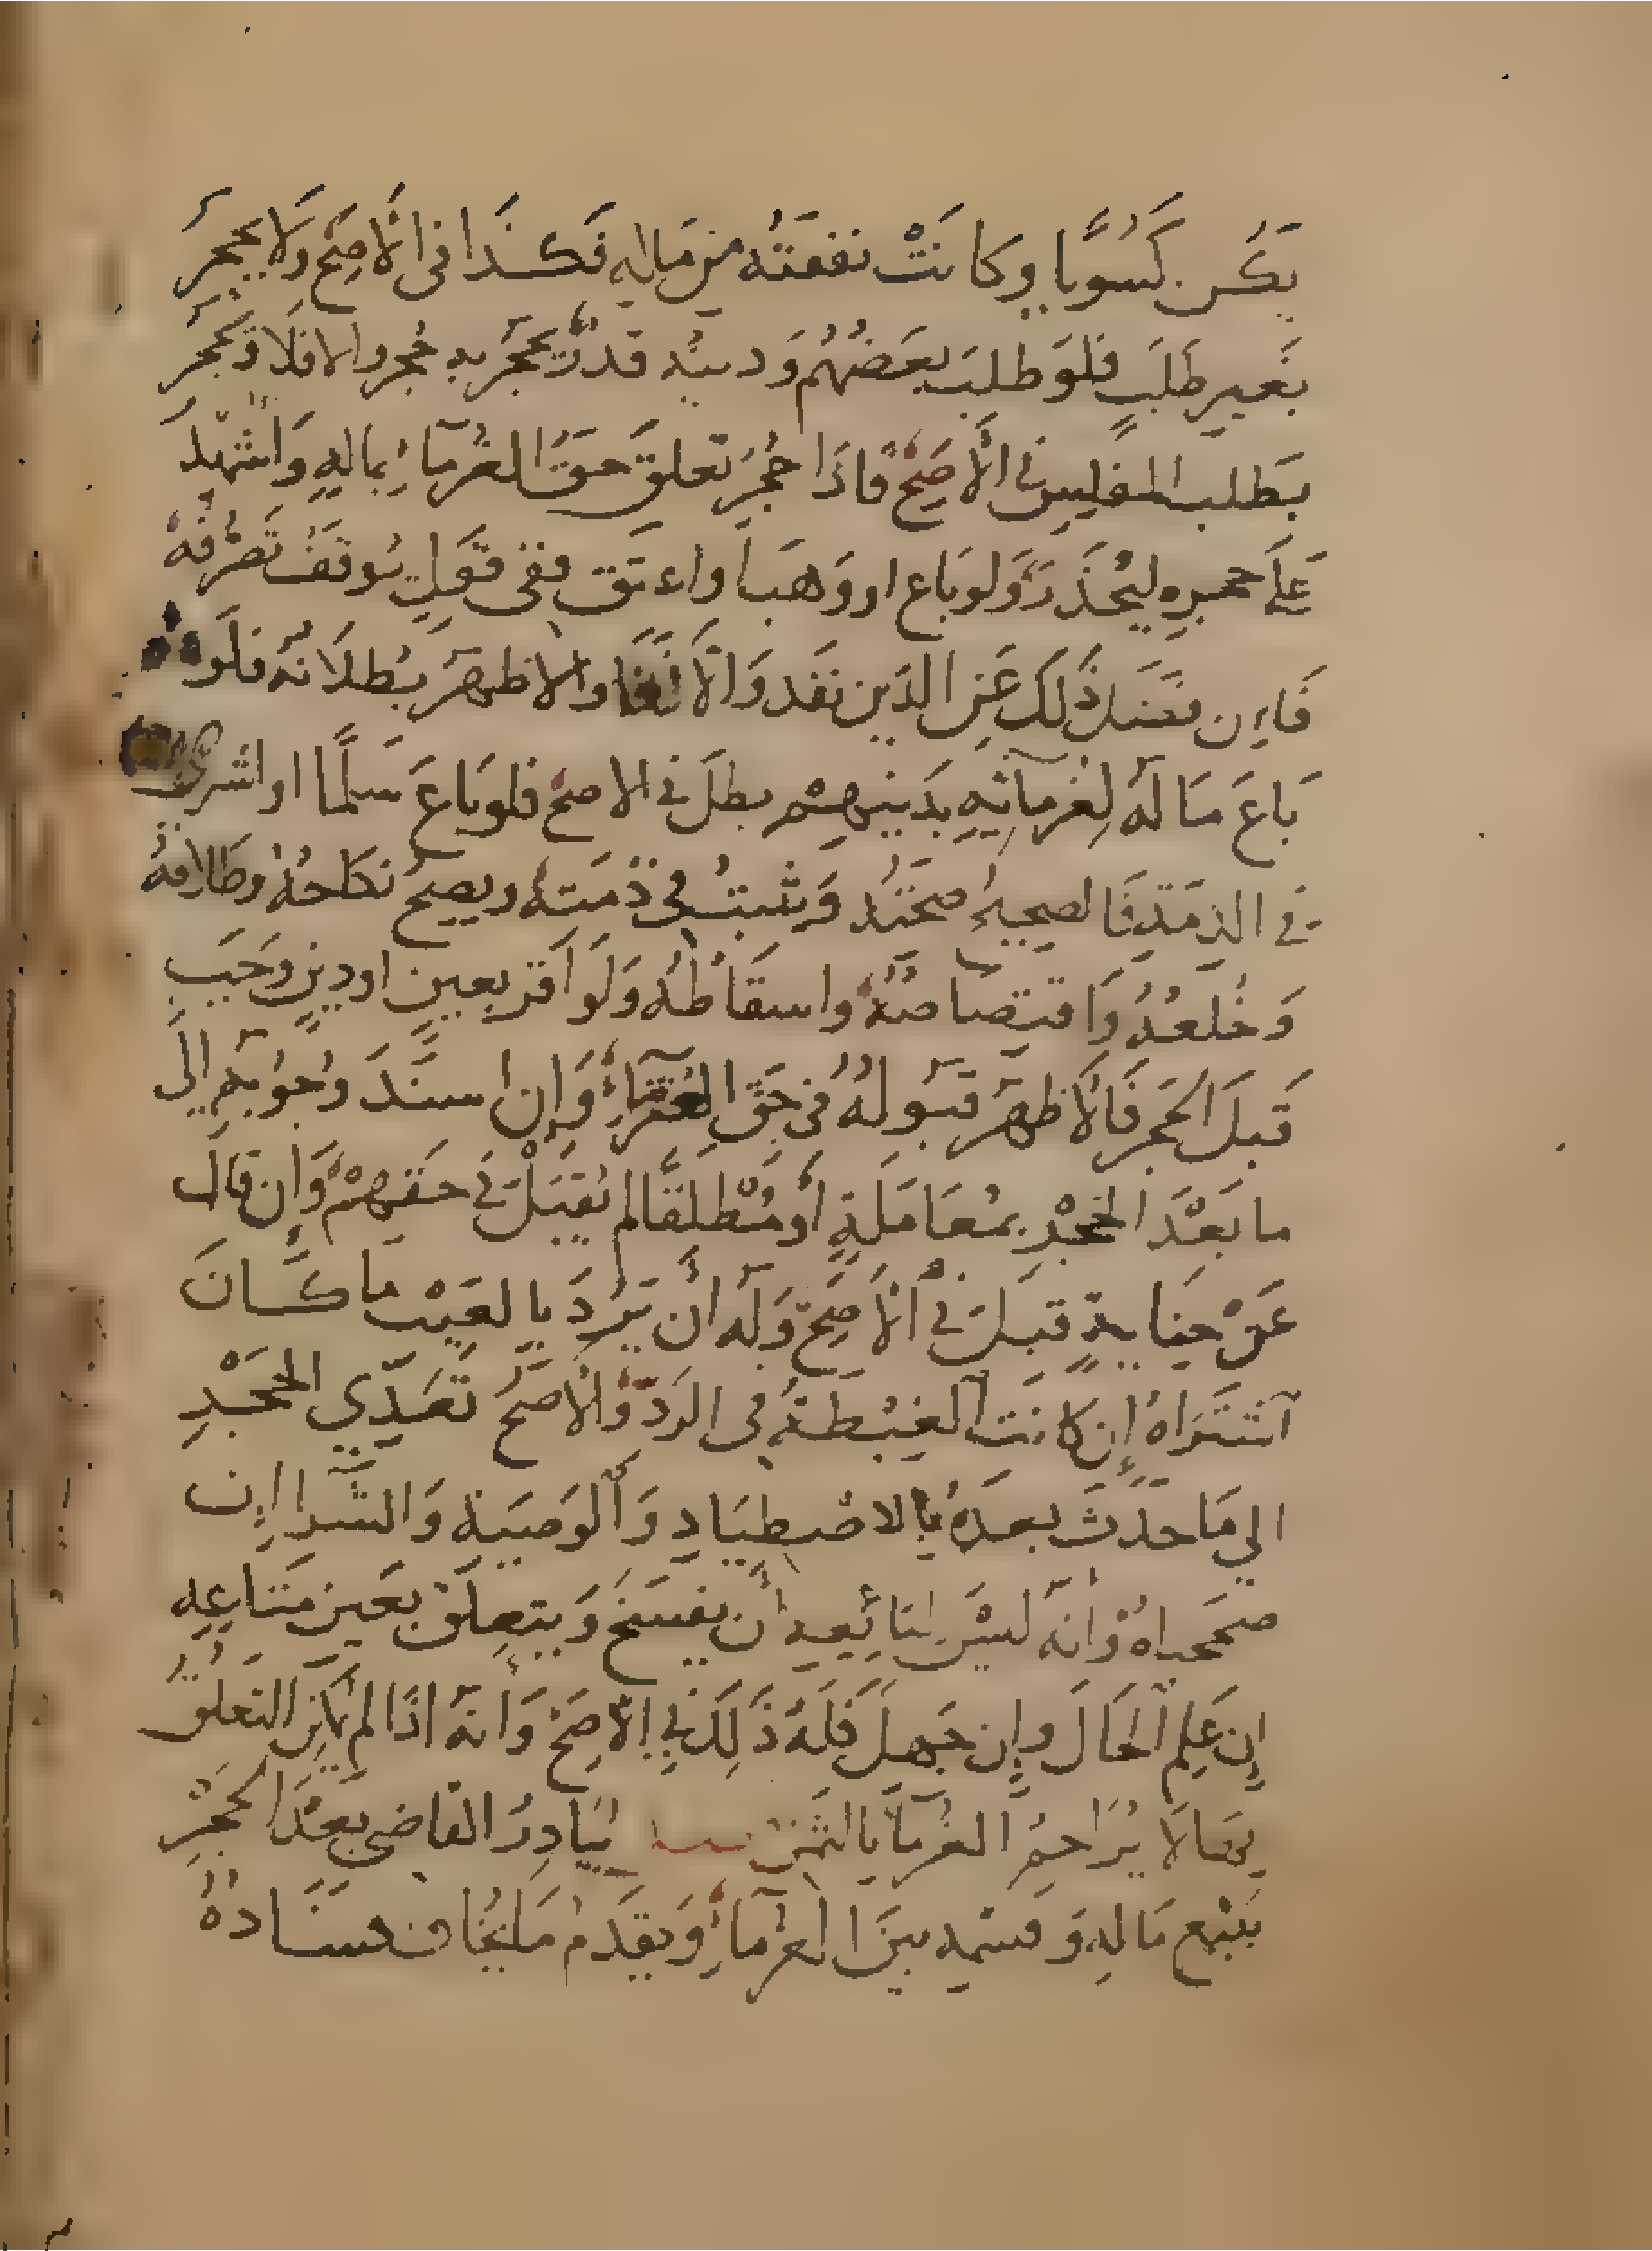 يكن كسوبا وكانت نفقته من ماله فكذا في الأصح ولا يحجر
بغير طلب فلو طلب بعضهم ودينه قدر يحجر به حجر والا فلا ويحجر
بطلب المفلس في الأصح فاذا حجر تعلق حق الغرماء بماله وأشهد
على حجره ليحذر ولو باع او وهب او اعتق ففي قول يوقف تصرفه
فإن فضل ذلك عن الدين نفذ والا لغا والاظهر بطلانه فلو
باع ماله لغرمائه بدينهم بطل في الاصح فلو باع سلما او اشترى
في الذمة فالصحيح صحته ويثبت في ذمته ويصح نكاحه وطلاقه
وخلعه واقتصاصه واسقاطه ولو اقر بعين او دين وجب
قبل الحجر فالأظهر قبوله في حق الغرماء وإن اسند وجوبه الى
ما بعد الحجر بمعاملة أو مطلقا لم يقبل في حقهم وإن قال
عن جناية قبل في الأصح وله أن يرد بالعيب ما كان
اشتراه إن كانت الغبطة في الرد والأصح تعدي الحجر
الي ما حدث بعده بالاصطياد والوصية والشرا إن
صححناه وأنه ليس لبائعه أن يفسخ ويتعلق بعين متاعه
إن علم الحال وإن جهل فله ذلك في الأصح وأنه اذا لم يكن التعلق
بها لا يزاحم الغرما بالثمن يبادر القاضي بعد الحجر
ببيع ماله وقسمه بين الغرماء ويقدم ما يخاف فساده